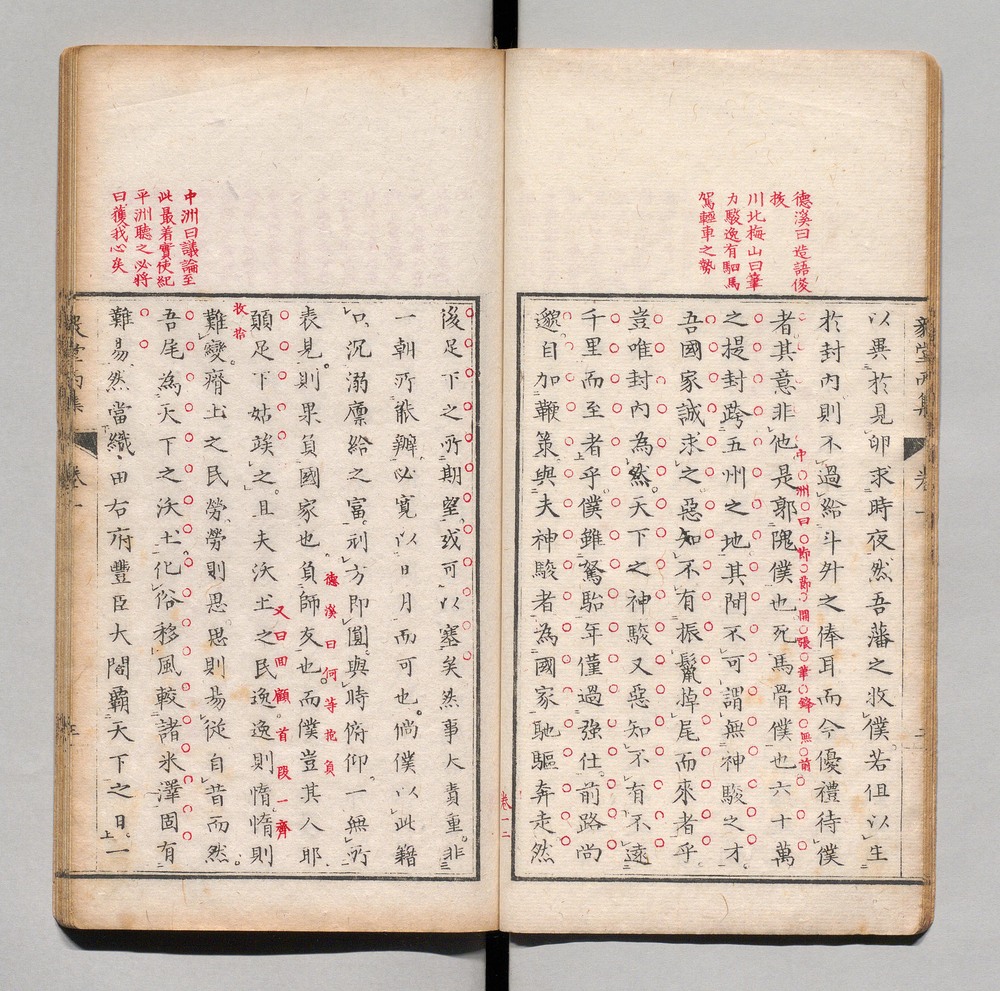 德溪曰造語俊
拔
川北梅山曰筆
力駿逸有駟馬
駕輕車之勢
毅堂丙集 卷一
以異於見卵求時夜然吾藩之收僕若但以生
於封内則不過給斗升之俸耳而今優禮待僕
者其意非他是郭隗僕也死馬骨僕也六十萬
中洲曰節節開張筆鋒無前
之提封跨五州之地其間不可謂無神駿之才
吾國家誠求之惡知不有振鬣掉尾而來者乎
豈唯封内為然天下之神駿又惡知不有不遠
千里而至者乎僕雖駑駘年僅過強仕前路尚
邈自加鞭策與夫神駿者為國家馳驅奔走然
卷一 二
中洲曰議論至
此最着實使紀
平洲聽之必將
曰獲我心矣
後足下之所期望或可以塞矣然事大責重非
一朝所能辦必寬以日月而可也倘僕以此籍
口沉溺廩給之富刓方即圓與時俯仰一無所
德溪曰何等抱負
表見則果負國家也負師友也而僕豈其人耶
又曰回顧首段一齊
收拾
顧足下姑竢之且夫沃土之民逸逸則惰惰則
難變瘠土之民勞勞則思思則易從自昔而然
吾尾為天下之沃土化俗移風較諸米澤固有
難易然當織田右府豐臣大閤霸天下之日一
毅堂丙集 卷一